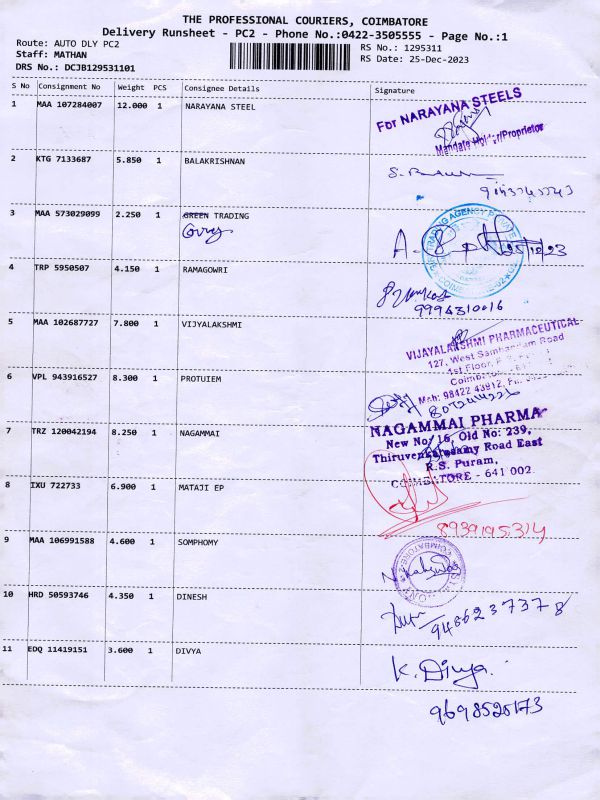 THE PROFESSIONAL COURIERS, COIMBATORE
Delivery Runsheet - PC2 - Phone No.:0422-3505555 - Page No.:1
Route: AUTO DLY PC2
RS No.: 1295311
Staff: MATHAN
RS Date: 25-Dec-2023
DRS No.: DCJB129531101
S No Consignment No Weight PCS Consignee Details Signature
1 MAA 107284007 12.000 1 NARAYANA STEEL
For NARAYANA STEELS
Mandate Holder/Proprietor
2 KTG 7133687 5.850 1 BALAKRISHNAN
3 MAA 573029099 2.250 1 GREEN TRADING
25/12/23
4 TRP 5950507 4.150 1 RAMAGOWRI
9994310016
5 MAA 102687727 7.800 1 VIJYALAKSHMI
VIJAYALAKSHMI PHARMACEUTICAL
127, West Sambandam Road
1st Floor,
6 VPL 943916527 8.300 1 PROTUIEM
NAGAMMAI PHARMA
New No: 16, Old No: 239,
7 TRZ 120042194 8.250 1 NAGAMMAI
Road East
R.S. Puram,
COIMBATORE - 641 002.
8 IXU 722733 6.900 1 MATAJI EP
8939195314
9 MAA 106991588 4.600 1 SOMPHOMY
10 HRD 50593746 4.350 1 DINESH
9486237378
11 EDQ 11419151 3.600 1 DIVYA
K. Divya.
9698528173